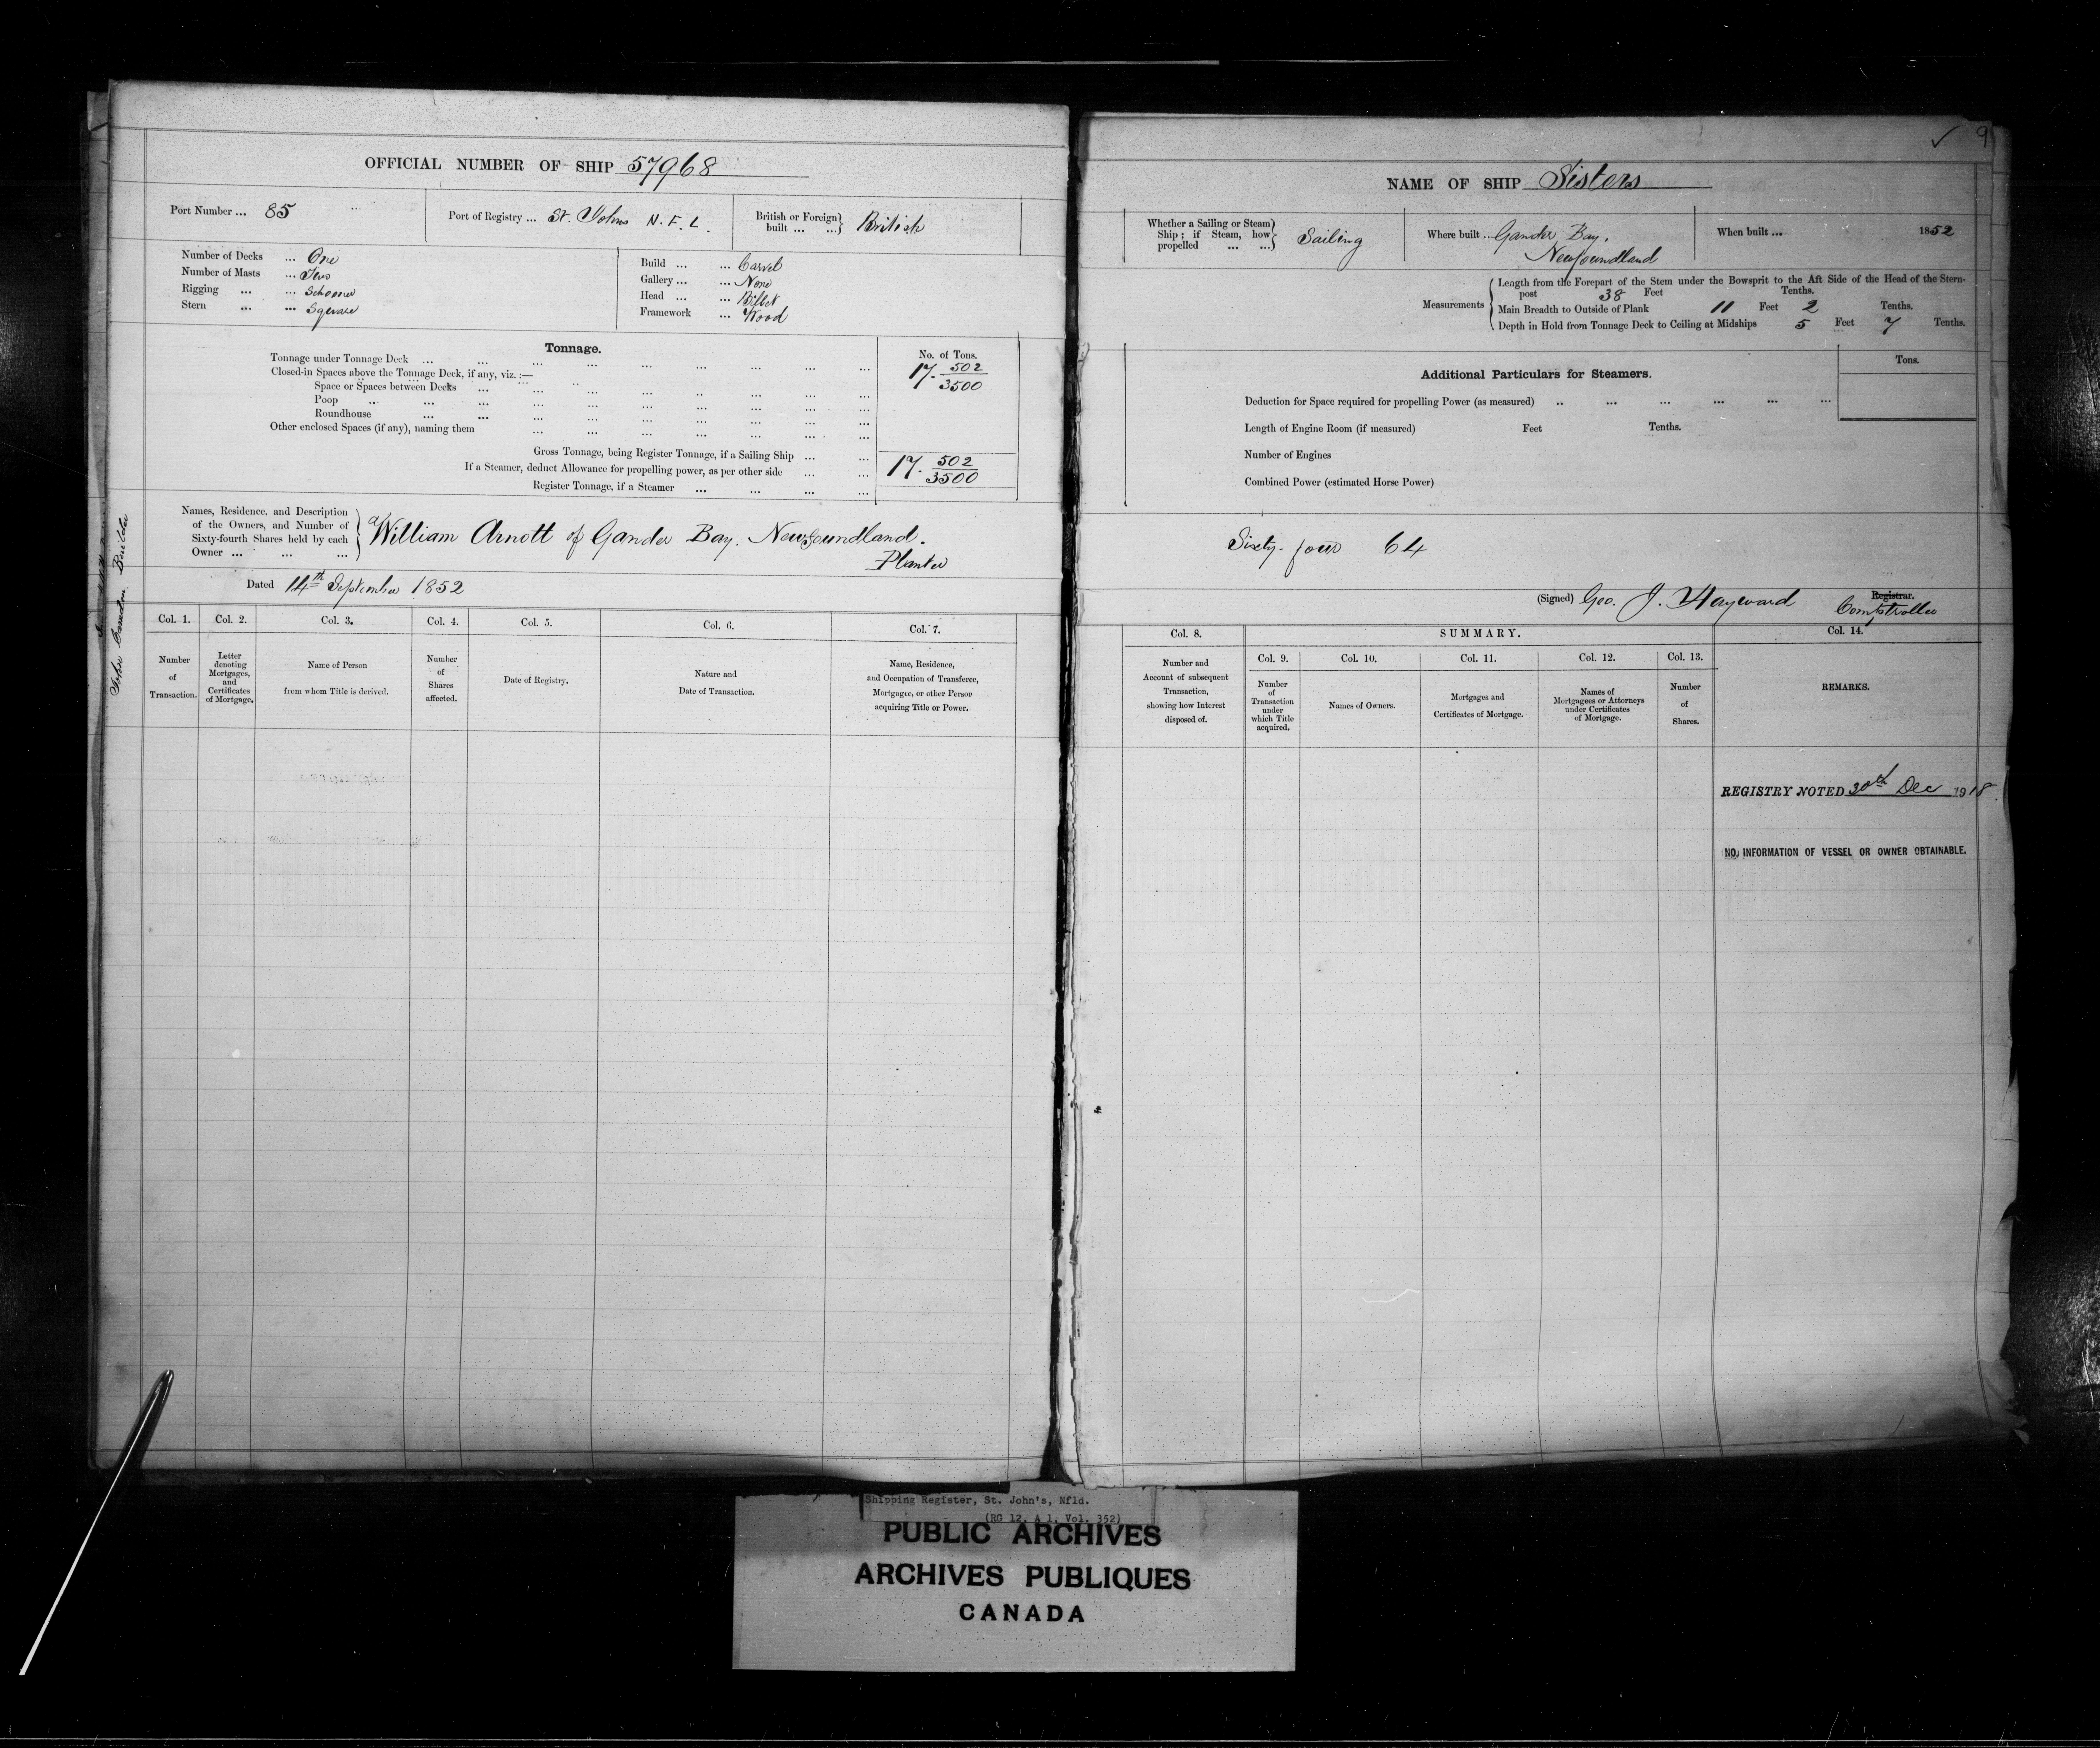 OFFICIAL NUMBER OF SHIP 57968
Port Number ... 85
Port of Registry ... St. Johns N.F.L.
British or Foreign built ... ...} British
Number of Decks ... One
Number of Masts ... Two
Rigging ... ... Schooner
Stern ... ... Square
Build ... ... Carvel
Gallery ... ... None
Head ... ... Billet
Framework ... Wood
Tonnage.
No. of Tons.
Tonnage under Tonnage Deck ... 17. 502/3500
Closed-in Spaces above the Tonnage Deck, if any, viz. :—
Space or Spaces between Decks
Poop
Roundhouse
Other enclosed Spaces (if any), naming them
Gross Tonnage, being Register Tonnage, if a Sailing Ship ... ...
If a Steamer, deduct Allowance for propelling power, as per other side ... ... 17. 502/3500
Register Tonnage, if a Steamer ... ... ... ...
Names, Residence, and Description
of the Owners, and Number of
Sixty-fourth Shares held by each
Owner ... ... ...
William Arnott of Gander Bay. Newfoundland.
Planter
Dated 14th September 1852
John Builder
Col. 1. Col. 2. Col. 3. Col. 4. Col. 5. Col. 6. Col. 7.
Number of Transaction.
Letter denoting Mortgages, and Certificates of Mortgage.
Name of Person from whom Title is derived.
Number of Shares affected.
Date of Registry.
Nature and Date of Transaction.
Name, Residence, and Occupation of Transferee, Mortgagee, or other Person acquiring Title or Power.
✓ 9
NAME OF SHIP Sisters
Whether a Sailing or Steam Ship ; if Steam, how propelled ... ...} Sailing
Where built ... Gander Bay,
Newfoundland
When built ... 1852
Measurements
Length from the Forepart of the Stem under the Bowsprit to the Aft Side of the Head of the Stern-
post 38 Feet Tenths.
Main Breadth to Outside of Plank 11 Feet 2 Tenths.
Depth in Hold from Tonnage Deck to Ceiling at Midships 5 Feet 7 Tenths.
Additional Particulars for Steamers.
Tons.
Deduction for Space required for propelling Power (as measured) .. ... ... ... ... ...
Length of Engine Room (if measured) Feet Tenths.
Number of Engines
Combined Power (estimated Horse Power)
Sixty-four 64
(Signed) Geo. J. Hayward Registrar.
Comptroller
Col. 8. SUMMARY. Col. 14.
Col. 9. Col. 10. Col. 11. Col. 12. Col. 13.
Number and Account of subsequent Transaction, showing how Interest disposed of.
Number of Transaction under which Title acquired.
Names of Owners.
Mortgages and Certificates of Mortgage.
Names of Mortgagees or Attorneys under Certificates of Mortgage.
Number of Shares.
REMARKS.
REGISTRY NOTED 30th Dec 1918.
NO, INFORMATION OF VESSEL OR OWNER OBTAINABLE.
Shipping Register, St. John's, Nfld.
(RG 12, A 1, Vol. 352)
PUBLIC ARCHIVES
ARCHIVES PUBLIQUES
CANADA